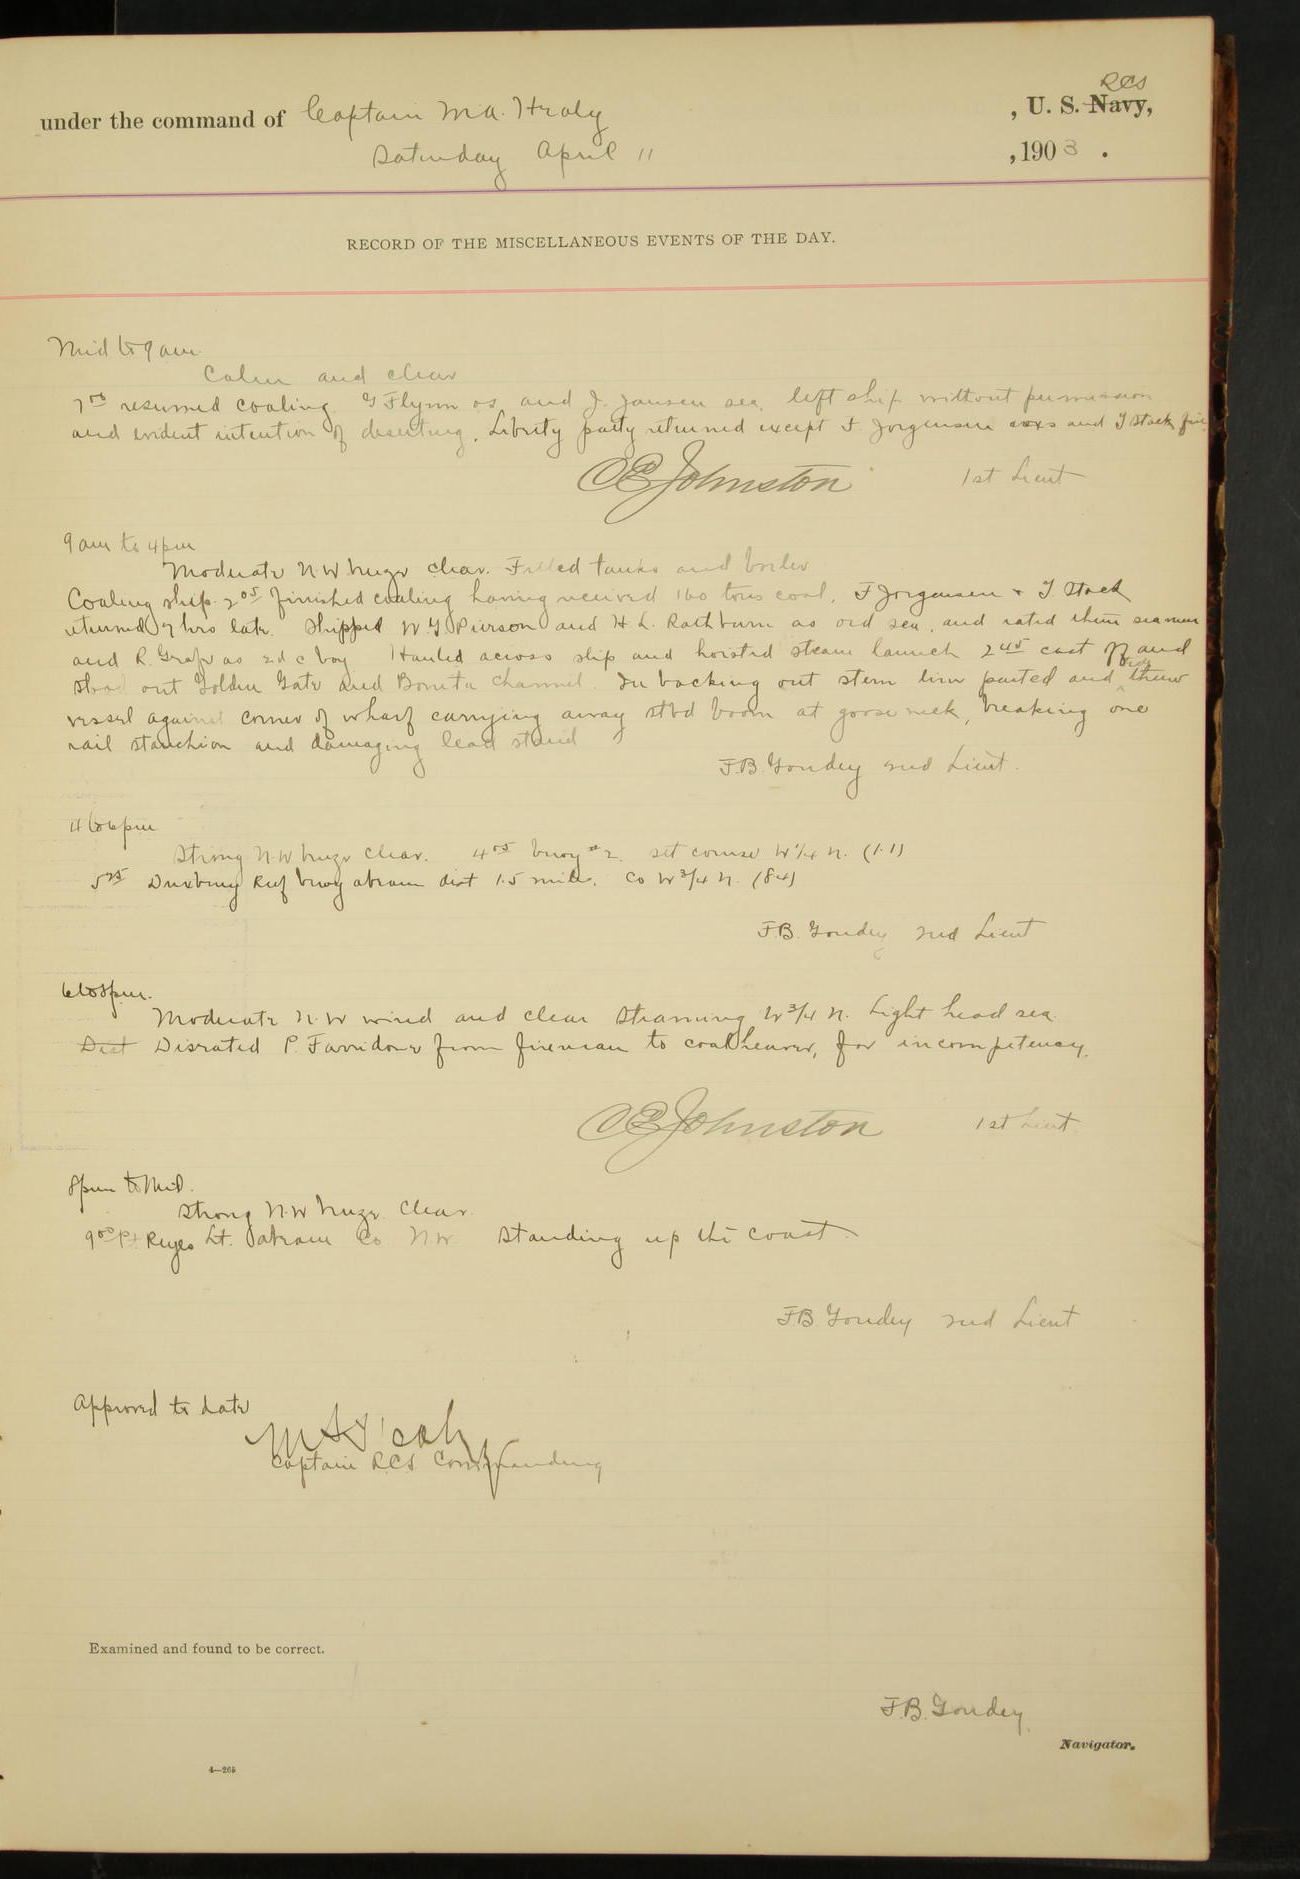 RCS
under the command of Captain M.A. Healy , U. S. Navy,
Saturday April 11 , 1903 .
RECORD OF THE MISCELLANEOUS EVENTS OF THE DAY.
Mid to 9 am.
Calm and clear
7 00 resumed coaling. G Flynn os, and J. Jansen sea. left ship without permission
and evident intention of deserting. Liberty party returned except F. Jorgensen and T Stack fire
CE Johnston 1st Lieut
9 am to 4 pm
Moderate N W breeze clear. Filled tanks and boiler
Coaling ship. 2 05 finished coaling having received 160 tons coal. F Jorgensen & T Stack
returned 7 hrs late. Shipped W. G Pierson and H L. Rathburn as ord sea. and rated them seamen
and R. Grafe as 2d c boy Hauled across slip and hoisted steam launch 2 45 cast off and
stood out Golden Gate and Bonita Channel. In backing out stern line parted and tide threw
vessel against corner of wharf carrying away stbd boom at goose neck, breaking one
rail stanchion and damaging lead stand
F.B. Goudey 2nd Lieut.
4 to 6 pm
Strong N.W breeze clear. 4 05 buoy #2. set course W 1/4 N. (1.1)
5 25 Duxbury Reef buoy abeam dist 1.5 miles. Co W 3/4 N. (84)
F.B. Goudey 2nd Lieut
6 to 8 pm.
Moderate N.W wind and clear Steaming W 3/4 N. Light head sea.
Dist Disrated P. Farridone from fireman to coal heaver, for incompetency.
CE Johnston 1st Lieut
8 pm to Mid.
Strong N.W breeze. Clear.
9 00 Pt Reyes Lt. abeam Co N W Standing up the coast.
F.B. Goudey 2nd Lieut
Approved to date
M A Healy
Captain RCS Commanding
Examined and found to be correct.
F.B. Goudey.
Navigator.
4—265